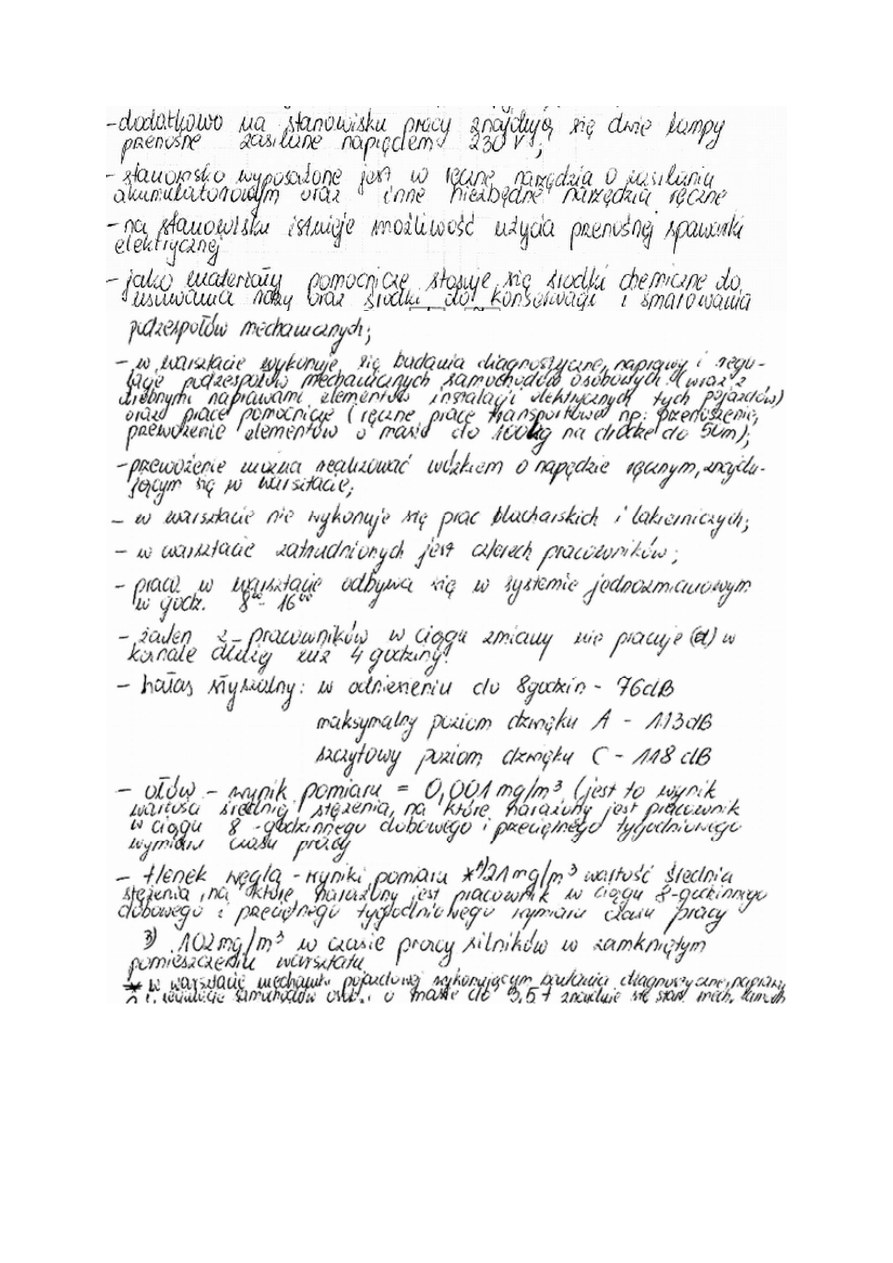 -dodatkowo na stanowisku pracy znajdują się dwie lampy
przenośne zasilane napięciem 230 V;
- stanowisko wyposażone jest w ręczne narzędzia o zasilaniu
akumulatorowym oraz inne niezbędne narzędzia ręczne
- na stanowisku istnieje możliwość użycia przenośnej spawarki
elektrycznej
- jako materiały pomocnicze stosuje się środki chemiczne do
usuwania rdzy oraz środki do konserwacji i smarowania
podzespołów mechanicznych;
- w warsztacie wykonuje się badania diagnostyczne, naprawy i regu-
lacje podzespołów mechanicznych samochodów osobowych (wraz z
drobnymi naprawami elementów instalacji elektrycznych tych pojazdów)
oraz prace pomocnicze (ręczne prace transportowe np: przenoszenie,
przewożenie elementów o masie do 100kg na drodze do 50m);
-przewożenie można realizować wózkiem o napędzie ręcznym, znajdu-
jącym się w warsztacie;
- w warsztacie nie wykonuje się prac blacharskich i lakierniczych;
- w warsztacie zatrudnionych jest czterech pracowników;
- praca w warsztacie odbywa się w systemie jednozmianowym
w godz. 8⁰⁰- 16⁰⁰
- żaden z pracowników w ciągu zmiany nie pracuje (d) w
kanale dłużej niż 4 godziny!
- hałas słyszalny: w odniesieniu do 8godzin - 76dB
maksymalny poziom dźwięku A - 113dB
szczytowy poziom dźwięku C - 118 dB
- ołów - wynik pomiaru = 0,001 mg/m³ (jest to wynik
wartości średniej stężenia, na które narażony jest pracownik
w ciągu 8 -godzinnego dobowego i przeciętnego tygodniowego
wymiaru czasu pracy
- tlenek węgla - wyniki pomiaru *¹⁾21mg/m³ wartość średnia
stężenia, na które narażony jest pracownik w ciągu 8-godzinnego
dobowego i przeciętnego tygodniowego wymiaru czasu pracy
3) 102mg/m³ w czasie pracy silników w zamkniętym
pomieszczeniu warsztatu
* w warsztacie mechaniki pojazdowej wykonującym badania diagnostyczne, naprawy
i regulacje samochodów osob. o masie do 3,5t znajduje się stan. mech.